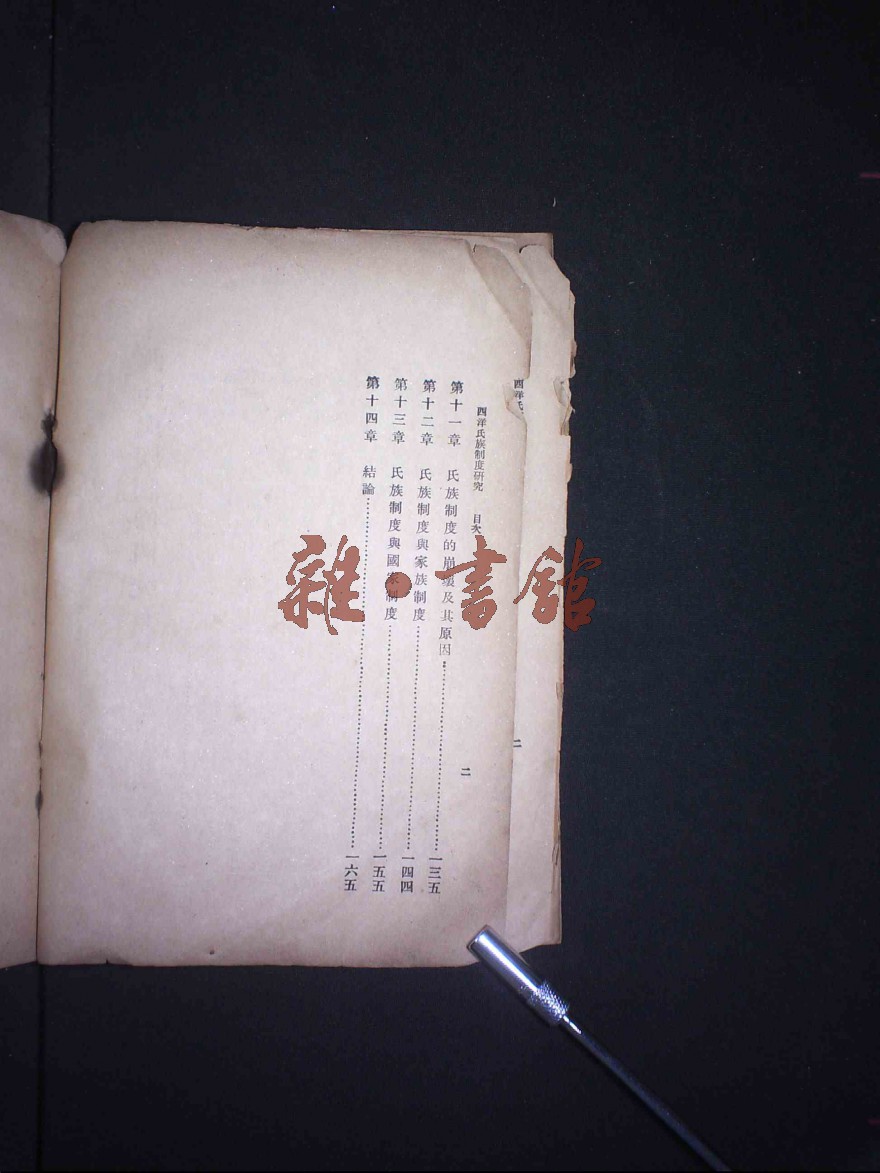 西洋氏
西洋氏族制度研究 目次
二
第十一章 氏族制度的崩壞及其原因……一三五
第十二章 氏族制度與家族制度……一四四
第十三章 氏族制度與國家制度……一五五
第十四章 結論……一六五
二
雜·書館